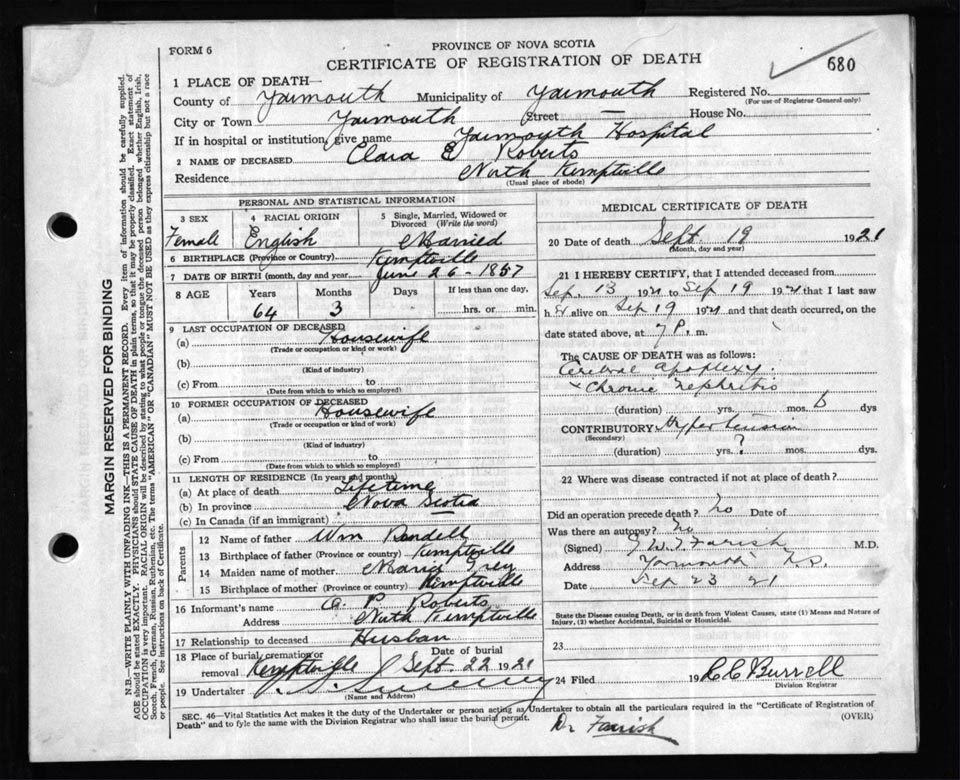 FORM 6
PROVINCE OF NOVA SCOTIA
CERTIFICATE OF REGISTRATION OF DEATH
680
1 PLACE OF DEATH—
County of Yarmouth Municipality of Yarmouth Registered No.
(For use of Registrar General only)
City or Town Yarmouth Street — House No.
If in hospital or institution, give name Yarmouth Hospital
2 NAME OF DECEASED Clara E Roberts
Residence North Kemptville
(Usual place of abode)
PERSONAL AND STATISTICAL INFORMATION
3 SEX 4 RACIAL ORIGIN 5 Single, Married, Widowed or Divorced (Write the word)
Female English Married
6 BIRTHPLACE (Province or Country) Kemptville
7 DATE OF BIRTH (month, day and year) June 26 - 1857
8 AGE Years Months Days If less than one day,
64 3 hrs. or min.
9 LAST OCCUPATION OF DECEASED
(a) Housewife
(Trade or occupation or kind of work)
(b)
(Kind of industry)
(c) From to
(Date from which to which so employed)
10 FORMER OCCUPATION OF DECEASED
(a) Housewife
(Trade or occupation or kind of work)
(b)
(Kind of industry)
(c) From to
(Date from which to which so employed)
11 LENGTH OF RESIDENCE (In years and months)
(a) At place of death Lifetime
(b) In province Nova Scotia
(c) In Canada (if an immigrant)
Parents
12 Name of father Wm Randell
13 Birthplace of father (Province or country) Kemptville
14 Maiden name of mother Maria Grey
15 Birthplace of mother (Province or country) Kemptville
16 Informant's name P. Roberts
Address North Kemptville
17 Relationship to deceased Husban
18 Place of burial, cremation or removal Kemptville Date of burial Sept. 22 1921
19 Undertaker
(Name and Address)
MEDICAL CERTIFICATE OF DEATH
20 Date of death Sept 19 1921
(Month, day and year)
21 I HEREBY CERTIFY, that I attended deceased from
Sep. 13 1921 to Sep 19 1921 that I last saw
her alive on Sep 19 1921 and that death occurred, on the
date stated above, at 7 P. m.
The CAUSE OF DEATH was as follows:
Cerebral apoplexy.
+ Chronic Nephritis
(duration) yrs. mos. 6 dys
CONTRIBUTORY Hypertension
(Secondary)
(duration) yrs. ? mos. dys.
22 Where was disease contracted if not at place of death?
Did an operation precede death? No Date of
Was there an autopsy? No
(Signed) Farish M.D.
Address Yarmouth N.S.
Date Sep 23 21
State the Disease causing Death, or in death from Violent Causes, state (1) Means and Nature of
Injury, (2) whether Accidental, Suicidal or Homicidal.
23
24 Filed 19 C C Burrell
Division Registrar
SEC. 46—Vital Statistics Act makes it the duty of the Undertaker or person acting as Undertaker to obtain all the particulars required in the "Certificate of Registration of
Death" and to fyle the same with the Division Registrar who shall issue the burial permit. (OVER)
Dr Farrish
MARGIN RESERVED FOR BINDING
N.B.—WRITE PLAINLY WITH UNFADING INK—THIS IS A PERMANENT RECORD. Every item of information should be carefully supplied.
AGE should be stated EXACTLY. PHYSICIANS should STATE CAUSE OF DEATH in plain terms, so that it may be properly classified. Exact statement of
OCCUPATION is very important. RACIAL ORIGIN will be described by stating to what people or tongue the deceased person belonged whether English, Irish,
Scotch, French, German, Russian, Ruthenian, etc. The terms "AMERICAN" or "CANADIAN" MUST NOT BE USED as they express citizenship but not a race
or people. See instructions on back of Certificate.